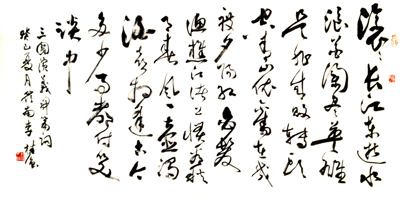 滚々长江东逝水
浪花淘尽英雄
是非成败转头
空青山依旧在几
度夕阳红白发
渔樵江渚上惯看秋
月春风一壶浊
酒喜相逢古今
多少事都付笑
谈中
三国演义开篇词
癸巳夏月于南